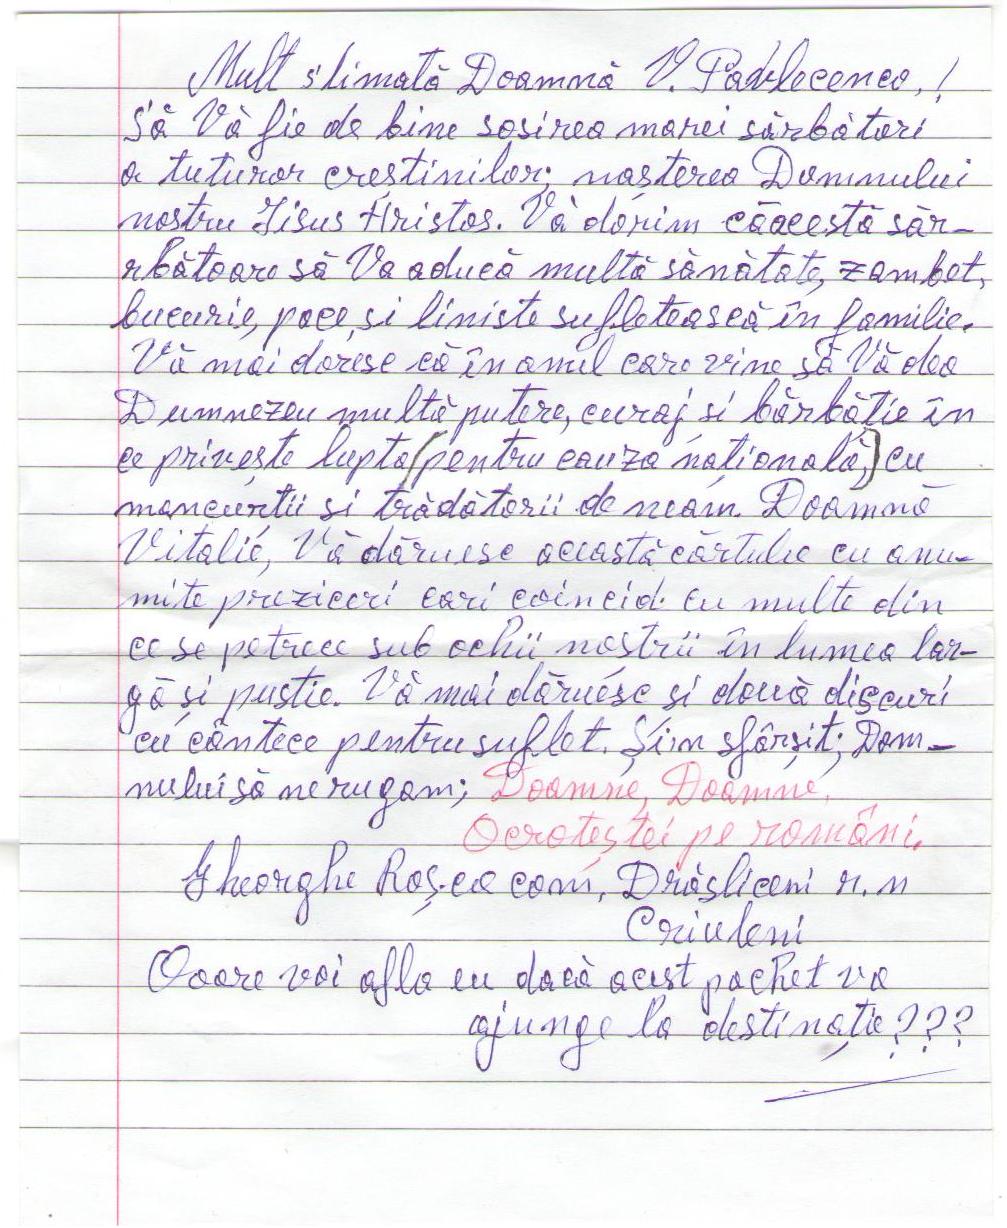 Mult stimată Doamnă V. Pavlecenco,!
Să Vă fie de bine sosirea marei sărbători
a tuturor creștinilor; nașterea Domnului
nostru Iisus Hristos. Vă dorim căacestă săr-
rbătoare să Va aducă multă sănătate, zambet,
bucurie, pace, și liniste sufletească în familie.
Vă mai doresc că în anul care vine să Vă dea
Dumnezeu multă putere, curaj si bărbăție în
ce privește lupta (pentru cauza națională,) cu
mancurtii si trădătorii de neam. Doamnă
Vitalie, Vă dăruesc această cărtulie cu anu-
mite preziceri cari coincid. cu multe din
ce se petrece sub ochii nostrii în lumea lar-
gă și pustie. Vă mai dăruesc si două discuri
cu cântece pentru suflet. Șiin sfârșit; Dom-
nului să nerugam; Doamne, Doamne,
Ocroteștei pe români.
Gheorghe Roș.ca com, Drăsliceni r. n
Criuleni
Ooare voi afla eu dacă acest pachet va
ajunge la destinație???